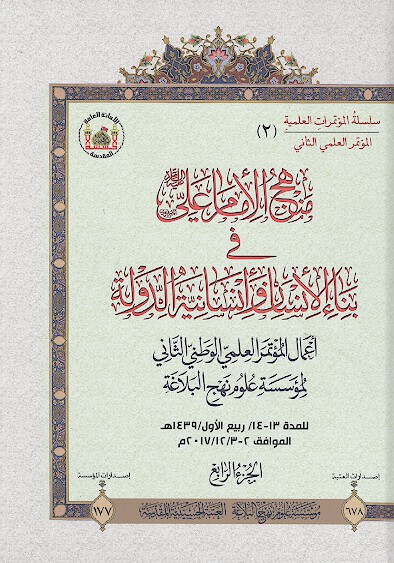 سلسلة المؤتمرات العلمية
(٢)
المؤتمر العلمي الثاني
الأمانة العامة
منهج الإمام علي
في
بناء الإنسان وإنسانية الدولة
أعمال المؤتمر العلمي الوطني الثاني
لمؤسسة علوم نهج البلاغة
للمدة ١٣-١٤/ ربيع الأول/١٤٣٩هـ
الموافق ٢-٢٠١٧/١٢/٣م
الجزء الرابع
إصدارات العتبة
إصدارات المؤسسة
٦٧٨
مؤسسة علوم نهج البلاغة العتبة الحسينية المقدسة
١٧٧